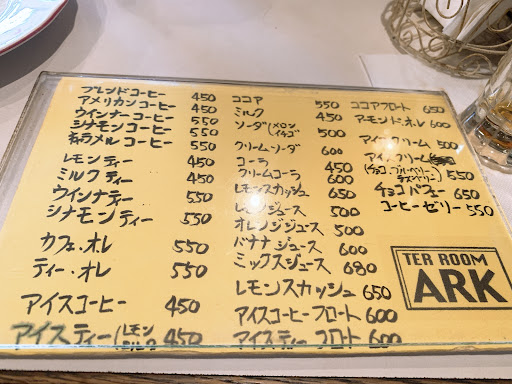 ブレンドコーヒー 450
アメリカンコーヒー 450
ウインナーコーヒー 550
シナモンコーヒー 550
キャラメルコーヒー 550
レモンティー 450
ミルクティー 450
ウインナティー 550
シナモンティー 550
カフェ・オレ 550
ティー・オレ 550
アイスコーヒー 450
アイスティー(レモン ミルク 450
ココア 550
ミルク 450
ソーダ(メロン イチゴ 500
クリームソーダ 600
コーラ 450
クリームコーラ 600
レモンスカッシュ 650
ジュース 500
オレンジジュース 500
バナナジュース 600
ミックスジュース 680
レモンスカッシュ 650
アイスコーヒーフロート 600
アイスティーフロート 600
ココアフロート 650
アーモンド・オレ 600
アイスクリーム 500
アイスクリーム
(チョコ ブルーベリー 550
チョコパフェー 650
コーヒーゼリー 550
TER ROOM
ARK